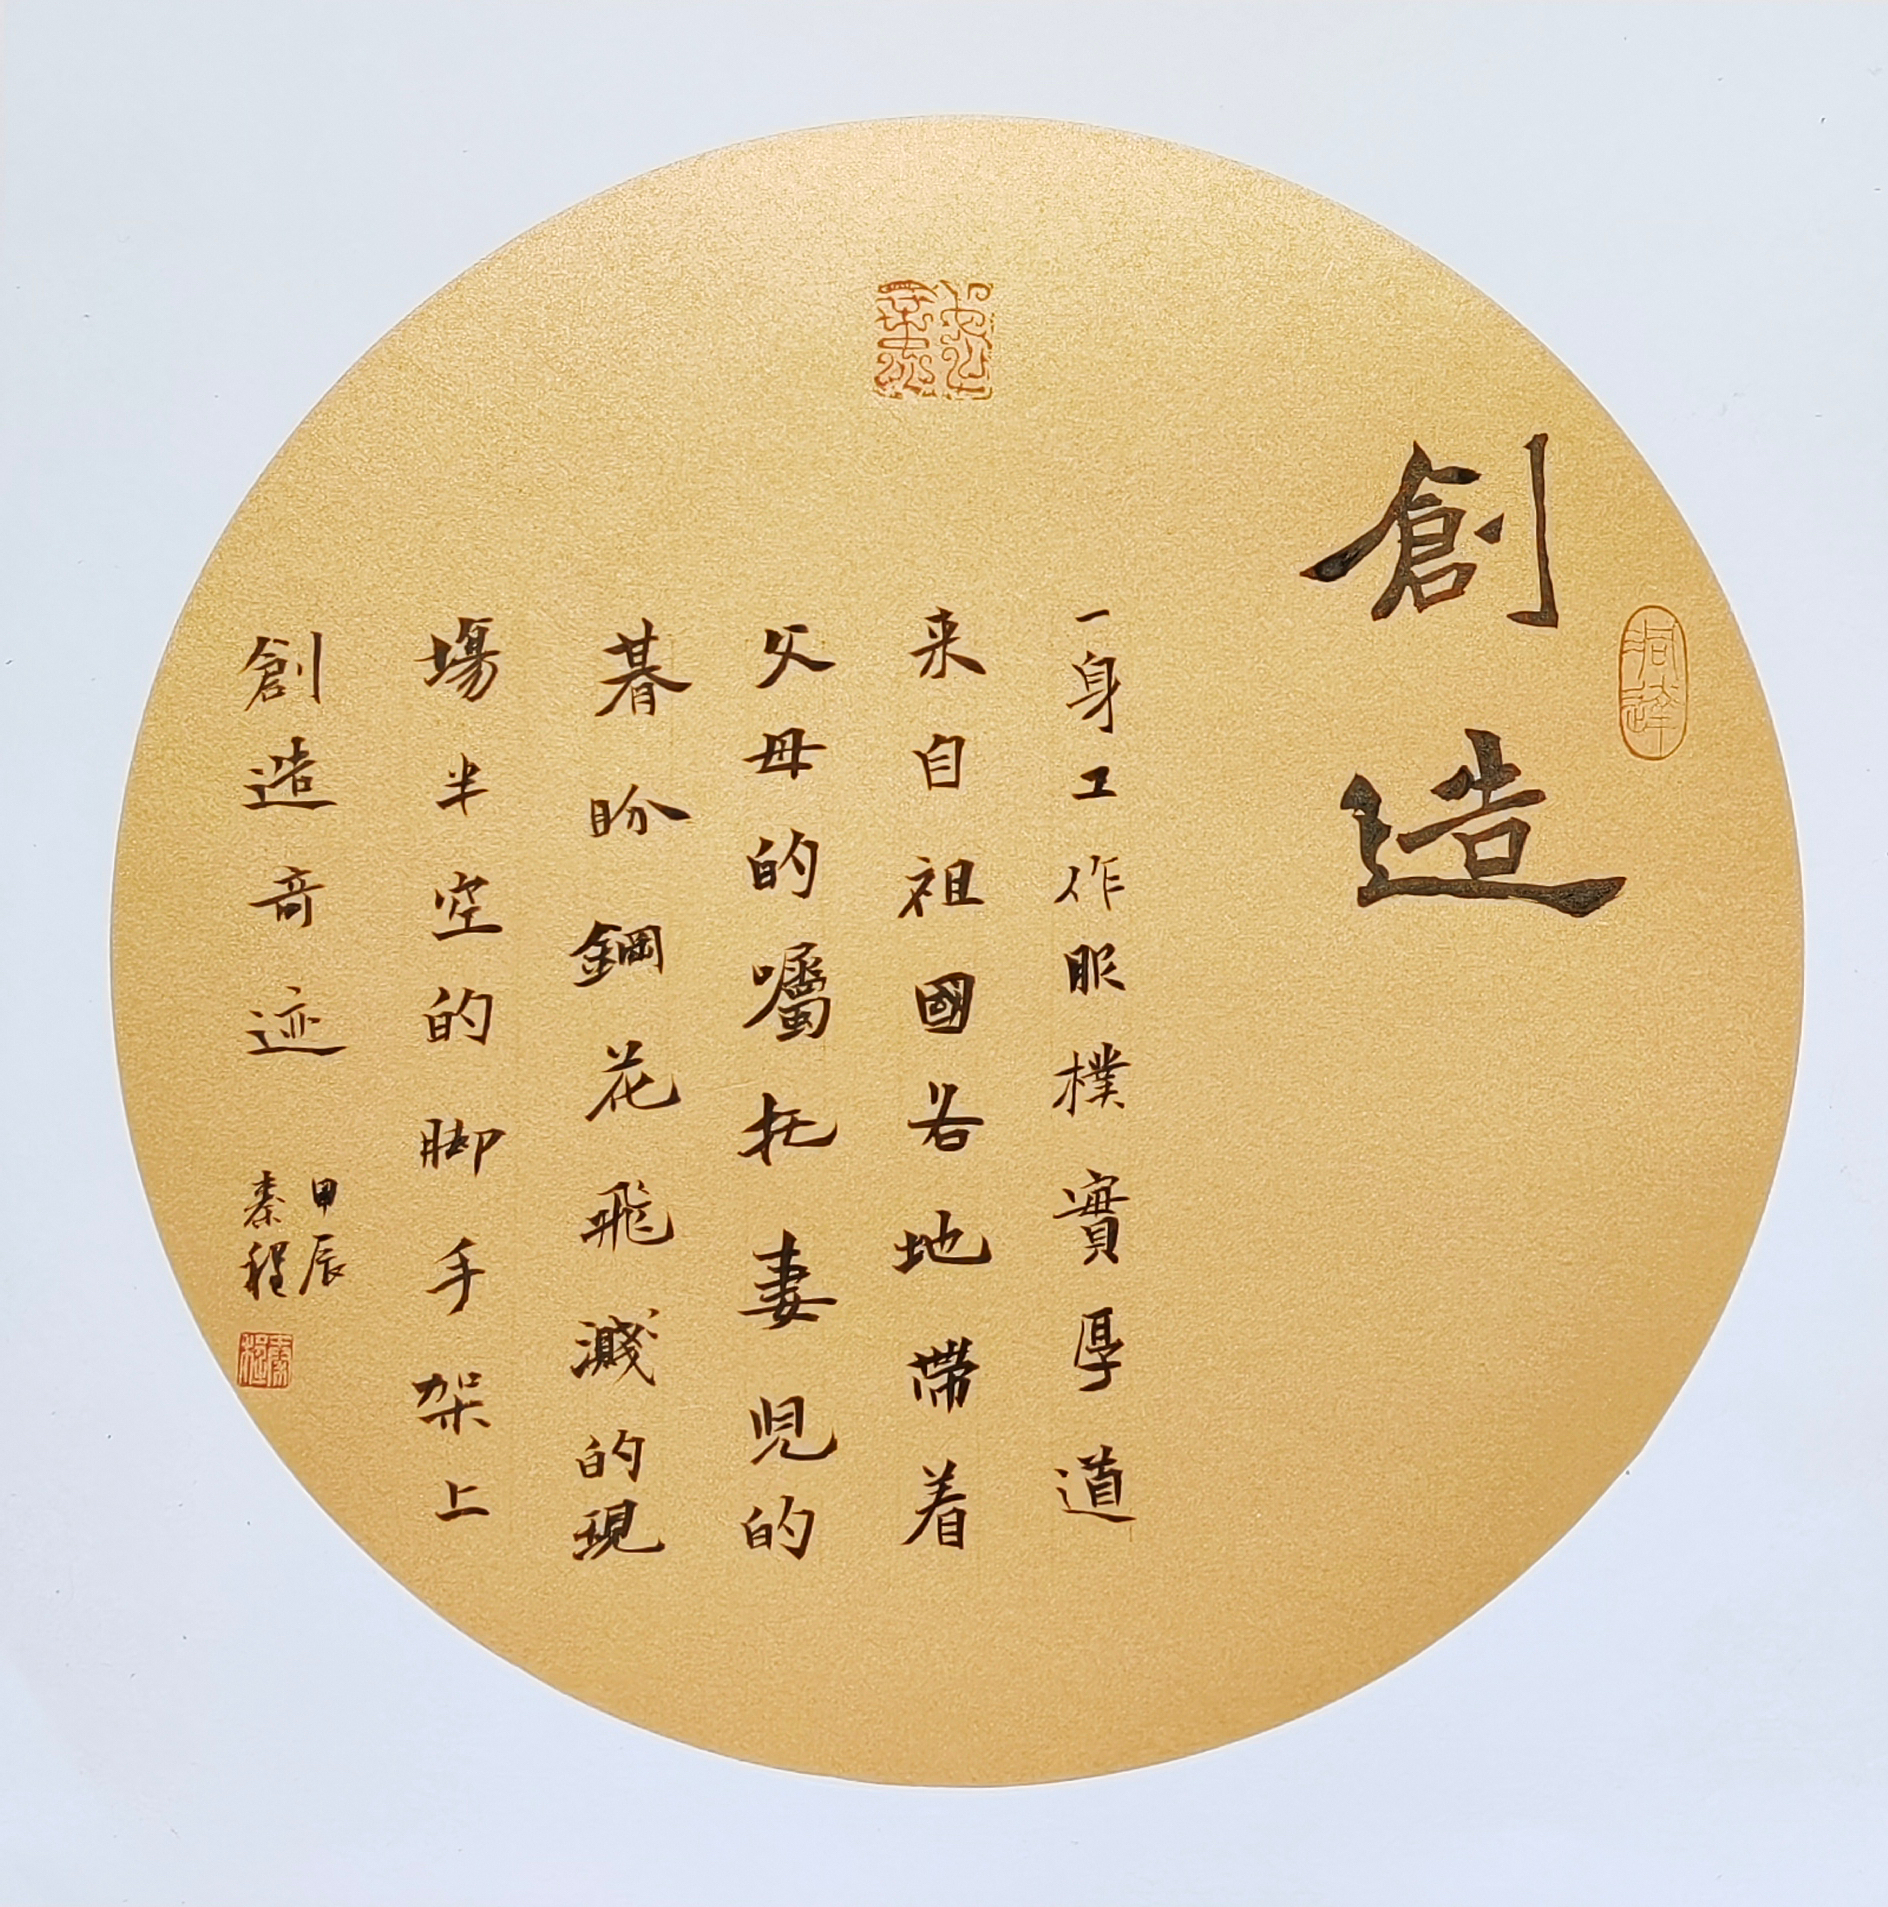 創造
一身工作服樸實厚道
来自祖國各地帶着
父母的囑托妻児的
暮盼鋼花飛濺的現
場半空的脚手架上
創造奇迹
甲辰
秦程